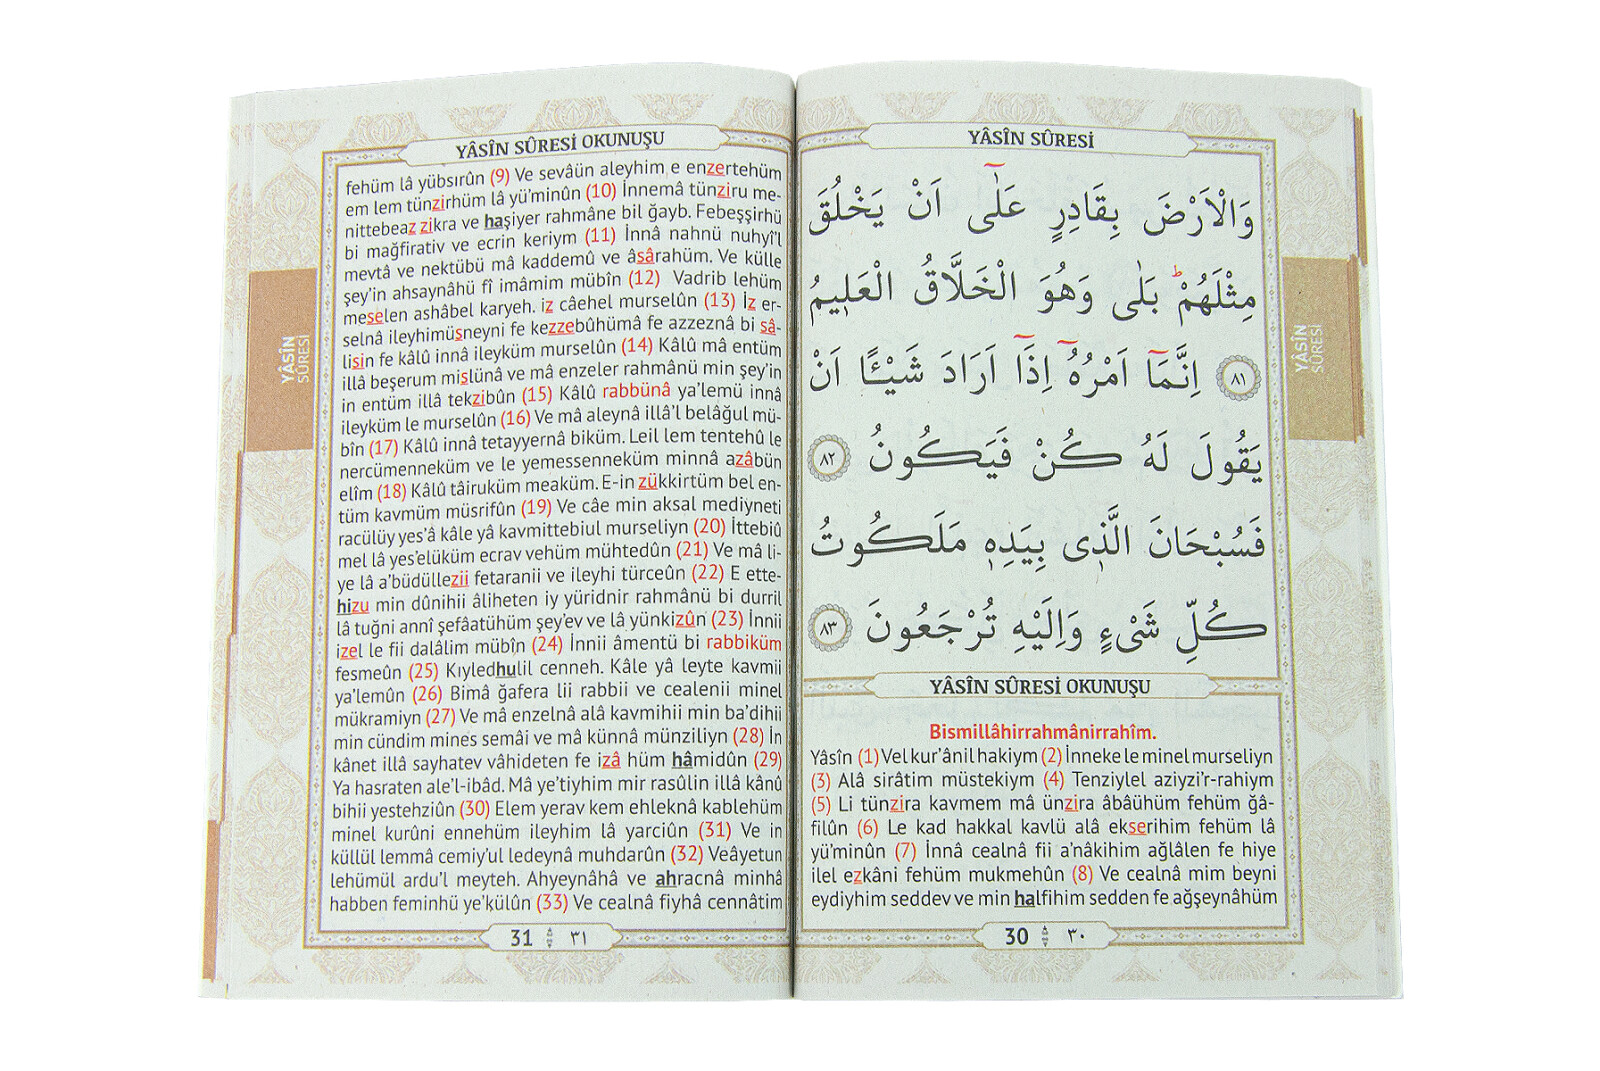 YÂSÎN SÛRESİ
وَالْاَرْضَ بِقَادِرٍ عَلٰٓى اَنْ يَخْلُقَ
مِثْلَهُمْۜ بَلٰى وَهُوَ الْخَلَّاقُ الْعَل۪يمُ
﴿٨١﴾ اِنَّمَٓا اَمْرُهُٓ اِذَٓا اَرَادَ شَيْـًٔا اَنْ
يَقُولَ لَهُ كُنْ فَيَكُونُ ﴿٨٢﴾
فَسُبْحَانَ الَّذ۪ى بِيَدِه۪ مَلَكُوتُ
كُلِّ شَىْءٍ وَاِلَيْهِ تُرْجَعُونَ ﴿٨٣﴾
YÂSÎN SÛRESİ OKUNUŞU
Bismillâhirrahmânirrahîm.
Yâsîn (1) Vel kur’ânil hakiym (2) İnneke le minel murseliyn
(3) Alâ sirâtim müstekiym (4) Tenziylel aziyzi’r-rahiym
(5) Li tünzira kavmem mâ ünzira âbâühüm fehüm ğâ-
filûn (6) Le kad hakkal kavlü alâ ekserihim fehüm lâ
yü’minûn (7) İnnâ cealnâ fii a’nâkihim ağlâlen fe hiye
ilel ezkâni fehüm mukmehûn (8) Ve cealnâ mim beyni
eydiyhim seddev ve min halfihim sedden fe ağşeynâhüm
30 ٣٠
YÂSÎN SÛRESİ
YÂSÎN SÛRESİ OKUNUŞU
fehüm lâ yübsırûn (9) Ve sevâün aleyhim e enzertehüm
em lem tünzirhüm lâ yü’minûn (10) İnnemâ tünziru me-
nittebeaz zikra ve haşiyer rahmâne bil ğayb. Febeşşirhü
bi mağfirativ ve ecrin keriym (11) İnnâ nahnü nuhyi’l
mevtâ ve nektübü mâ kaddemû ve âsârahüm. Ve külle
şey’in ahsaynâhü fî imâmim mübîn (12) Vadrib lehüm
meselen ashâbel karyeh. iz câehel murselûn (13) İz er-
selnâ ileyhimüsneyni fe kezzebûhümâ fe azzeznâ bi sâ-
lisin fe kâlû innâ ileyküm murselûn (14) Kâlû mâ entüm
illâ beşerum mislünâ ve mâ enzeler rahmânü min şey’in
in entüm illâ tekzibûn (15) Kâlû rabbünâ ya’lemü innâ
ileyküm le murselûn (16) Ve mâ aleynâ illâ’l belâğul mü-
bîn (17) Kâlû innâ tetayyernâ biküm. Leil lem tentehû le
nercümenneküm ve le yemessenneküm minnâ azâbün
elîm (18) Kâlû tâiruküm meaküm. E-in zükkirtüm bel en-
tüm kavmüm müsrifûn (19) Ve câe min aksal mediyneti
racülüy yes’â kâle yâ kavmittebiul murseliyn (20) İttebiû
mel lâ yes’elüküm ecrav vehüm mühtedûn (21) Ve mâ li-
ye lâ a’büdüllezii fetaranii ve ileyhi türceûn (22) E ette-
hizu min dûnihii âliheten iy yüridnir rahmânü bi durril
lâ tuğni annî şefâatühüm şey’ev ve lâ yünkizûn (23) İnnii
izel le fii dalâlim mübîn (24) İnnii âmentü bi rabbiküm
fesmeûn (25) Kıyledhulil cenneh. Kâle yâ leyte kavmii
ya’lemûn (26) Bimâ ğafera lii rabbii ve cealenii minel
mükramiyn (27) Ve mâ enzelnâ alâ kavmihii min ba’dihii
min cündim mines semâi ve mâ künnâ münziliyn (28) İn
kânet illâ sayhatev vâhideten fe izâ hüm hâmidûn (29)
Ya hasraten ale’l-ibâd. Mâ ye’tiyhim mir rasûlin illâ kânû
bihii yestehziûn (30) Elem yerav kem ehleknâ kablehüm
minel kurûni ennehüm ileyhim lâ yarciûn (31) Ve in
küllül lemmâ cemiy’ul ledeynâ muhdarûn (32) Veâyetun
lehümül ardu’l meyteh. Ahyeynâhâ ve ahracnâ minhâ
habben feminhü ye’külûn (33) Ve cealnâ fiyhâ cennâtim
31 ٣١
YÂSÎN SÛRESİ